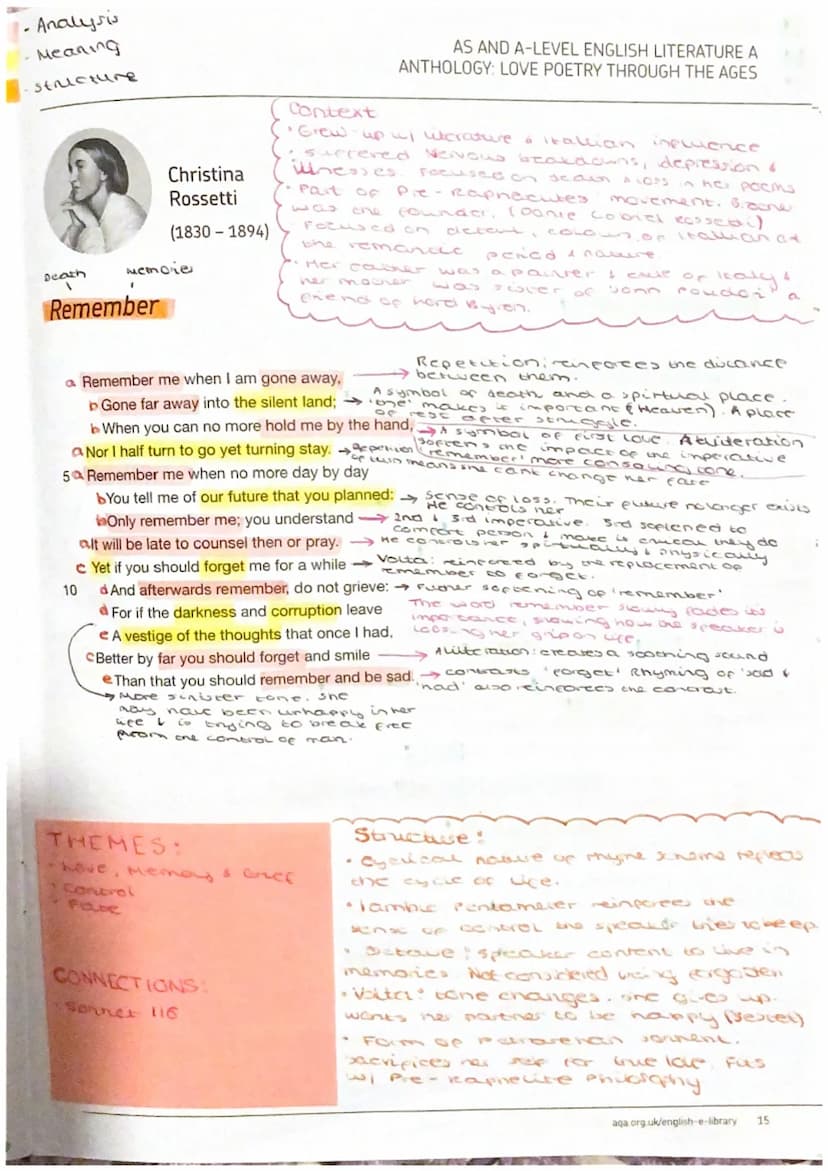 - Analysis
- Meaning
- Structure
AS AND A-LEVEL ENGLISH LITERATURE A
ANTHOLOGY: LOVE POETRY THROUGH THE AGES
Christina
Rossetti
(1830 – 1894)
Context
• Grew up w/ literature & Itallian influence
• suffered nervous breakdowns, depression &
illnesses. Focused on death & loss in her poems
• Part of Pre-Raphaelites movement. Brother
was the founder. (Dante Gabriel Rossetti)
Focused on detail, colours, of Itallian art
the romantic period & nature.
• Her father was a painter & exile of Italy &
her mother was sister of 'John Polidori' a
friend of Lord Byron.
Death memories
Remember
a Remember me when I am gone away, → Repetition: reinforces the distance between them.
b Gone far away into the silent land; → A symbol of death and a spiritual place. 'the' makes it important (Heaven). A place of rest after struggle.
b When you can no more hold me by the hand, → A symbol of first love. Alliteration softens the impact of the imperative 'remember' more consoling tone.
a Nor I half turn to go yet turning stay. → repetition of turn means she can't change her fate
5 a Remember me when no more day by day
b You tell me of our future that you planned: → Sense of loss. Their future no longer exists He controls her
b Only remember me; you understand → 2nd & 3rd imperative. 3rd softened to comfort person & make is crucial they do
a It will be late to counsel then or pray. → He controls her spiritually & physically
c Yet if you should forget me for a while → Volta: reinforced by the replacement of remember to forget.
10 d And afterwards remember, do not grieve: → further softening of 'remember'
d For if the darkness and corruption leave The word remember slowly fades its importance, showing how the speaker is loosing her grip on life.
e A vestige of the thoughts that once I had,
c Better by far you should forget and smile → Alliteration: creates a soothing sound
e Than that you should remember and be sad. → contrasts 'forget' Rhyming of 'sad' & 'had' also reinforces the contrast.
→ More sinister tone. She
may have been unhappy in her
life & is trying to break free
from the control of man.
THEMES:
• Love, Memory & Grief
• Control
• Fate
CONNECTIONS:
• Sonnet 116
Structure:
• Cyclical nature of rhyme scheme reflects
the cycle of life.
• Iambic Pentameter reinforces the
sense of control the speaker tries to keep
• Octave: speaker content to live in
memories. Not considered being forgotten
• Volta: tone changes. She gives up.
wants her partner to be happy (sestet)
• Form of Petrarchan sonnet.
Sacrifices her self for true love. Fits
w/ Pre-Raphaelite Philosphy
aqa.org.uk/english-e-library 15